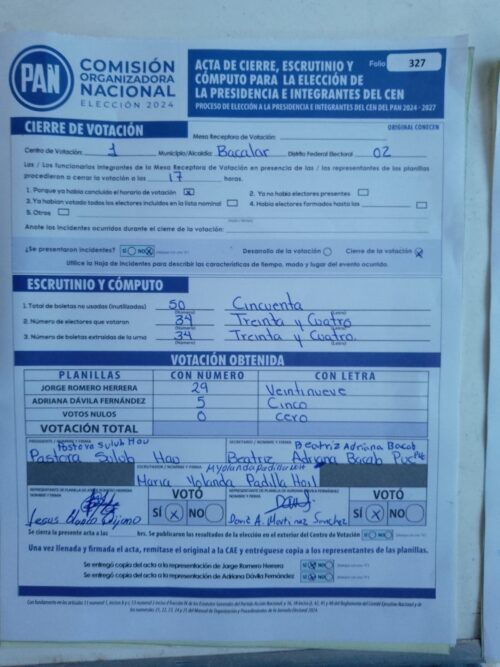 PAN
COMISIÓN
ORGANIZADORA
NACIONAL
ELECCIÓN 2024
ACTA DE CIERRE, ESCRUTINIO Y
CÓMPUTO PARA LA ELECCIÓN DE
LA PRESIDENCIA E INTEGRANTES DEL CEN
PROCESO DE ELECCIÓN A LA PRESIDENCIA E INTEGRANTES DEL CEN DEL PAN 2024 - 2027
Folio 327
CIERRE DE VOTACIÓN
ORIGINAL CONECEN
Mesa Receptora de Votación:
Centro de Votación: 1 Municipio/Alcaldía: Bacalar Distrito Federal Electoral 02
Las / Los funcionarios integrantes de la Mesa Receptora de Votación en presencia de las / los representantes de las planillas
procedieron a cerrar la votación a las 17 horas.
1. Porque ya había concluido el horario de votación X 2. Ya no había electores presentes
3. Ya habían votado todos los electores incluidos en la lista nominal 4. Había electores formados hasta las
5. Otros
Anote los incidentes ocurridos durante el cierre de la votación:
¿Se presentaron incidentes? SÍ NO X Desarrollo de la votación Cierre de la votación X
Utilice la Hoja de Incidentes para describir las características de tiempo, modo y lugar del evento ocurrido.
ESCRUTINIO Y CÓMPUTO
1. Total de boletas no usadas (inutilizadas) 50 Cincuenta
(Número) (Letra)
2. Número de electores que votaron 34 Treinta y Cuatro
(Número) (Letra)
3. Número de boletas extraídas de la urna 34 Treinta y Cuatro.
(Número) (Letra)
VOTACIÓN OBTENIDA
PLANILLAS CON NÚMERO CON LETRA
JORGE ROMERO HERRERA 29 Veintinueve
ADRIANA DÁVILA FERNÁNDEZ 5 Cinco
VOTOS NULOS 0 Cero
VOTACIÓN TOTAL
PRESIDENTE / NOMBRE Y FIRMA SECRETARIO / NOMBRE Y FIRMA
Pastora Sulub Hau Beatriz Adriana Bacab
Pastora Sulub Hau Beatriz Adriana Bacab Puc
ESCRUTADOR / NOMBRE Y FIRMA
María Yolanda Padilla
VOTÓ VOTÓ
SÍ X NO SÍ X NO
Se cierra la presente acta a las hrs. Se publicaron los resultados de la elección en el exterior del Centro de Votación SÍ NO
Una vez llenada y firmada el acta, remítase el original a la CAE y entréguese copia a los representantes de las planillas.
Se entregó copia del acta a la representación de Jorge Romero Herrera SÍ X NO
Se entregó copia del acta a la representación de Adriana Dávila Fernández SÍ X NO